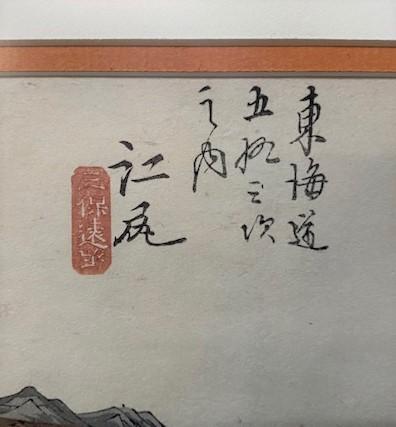 東海道
五拾三次
之内
江尻
三保遠望